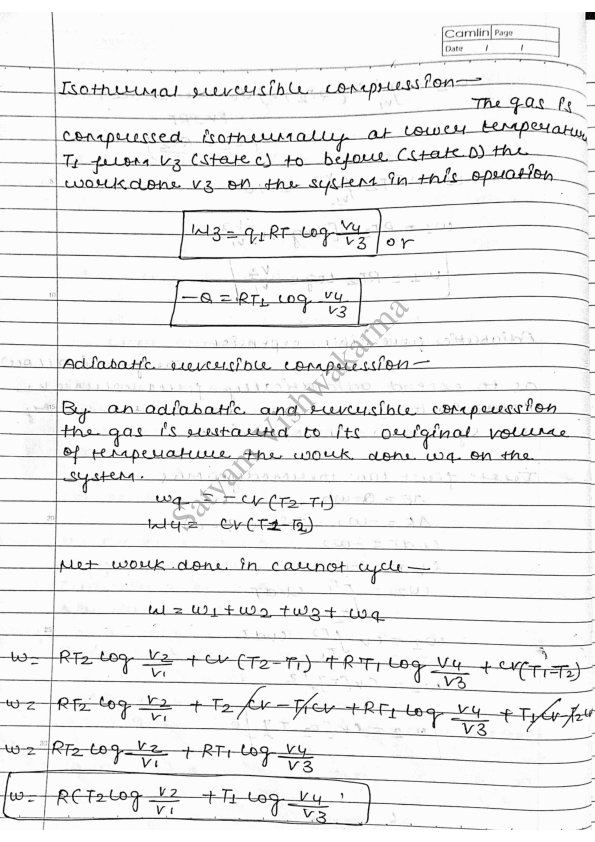 Camlin Page
Date / /
Isothermal reversible compression—
The gas is
compressed isothermally at lower temperature
T1 from V3 (state C) to before (state D) the
workdone V3 on the system in this operation
W3 = q1RT log V4/V3 or
-Q = RT1 log V4/V3
Adiabatic reversible compression—
By an adiabatic and reversible compression
the gas is restarted to its original volume
of temperature the work done w4 on the
system.
w4 = -CV(T2-T1)
W4 = CV(T1-T2)
Net work done in carnot cycle—
W = W1 + W2 + W3 + W4
W = RT2 log V2/V1 + CV (T2-T1) + RT1 log V4/V3 + CV(T1-T2)
W = RT2 log V2/V1 + T2 CV - T1CV + RT1 log V4/V3 + T1CV - T2CV
W = RT2 log V2/V1 + RT1 log V4/V3
W = R(T2 log V2/V1 + T1 log V4/V3
Satyam Vishwakarma